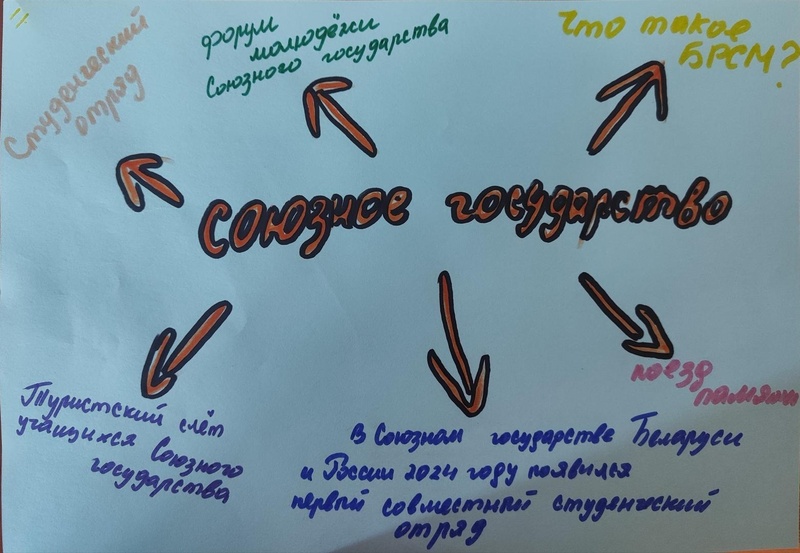 11
Студенческий
отряд
форум
молодёжи
Союзного государства
Что такое
БРСМ?
Союзное государство
Туристский слёт
учащихся Союзного
государства
В Союзном государстве Беларуси
и России 2024 году появился
первый совместный студенческий
отряд
поезд
памяти